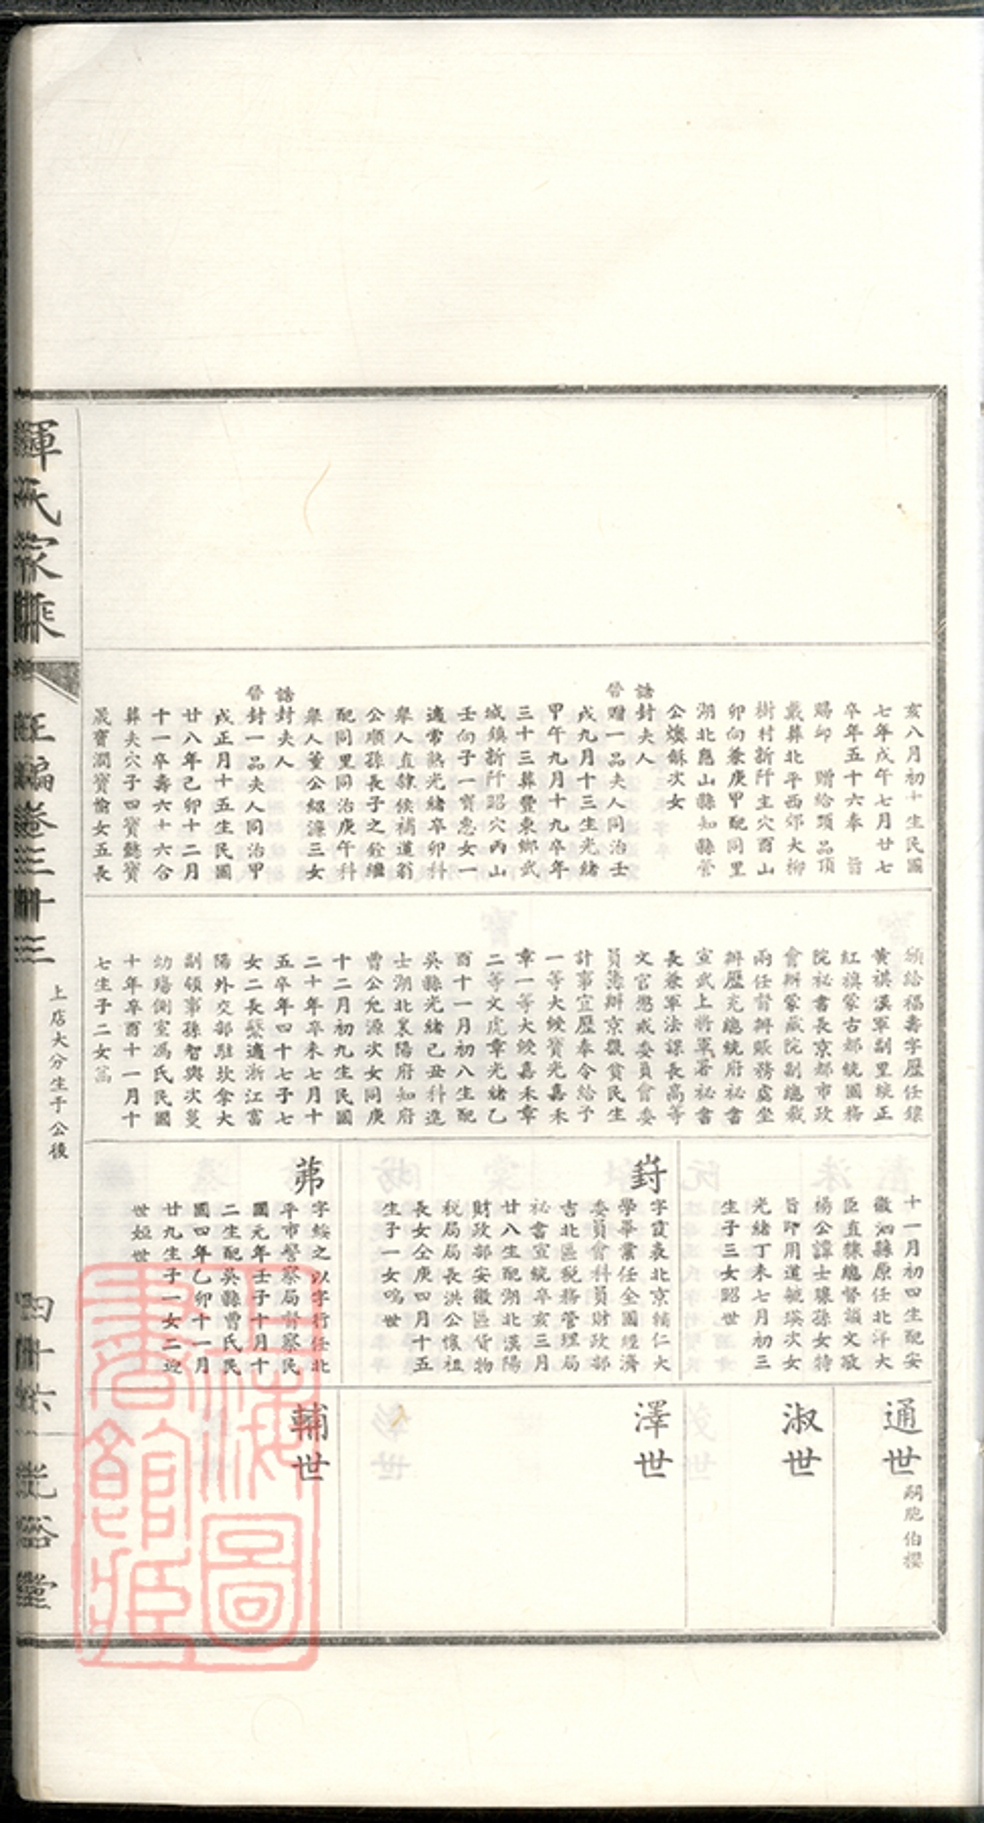 亥八月初十生民國
七年戊午七月廿七
卒年五十六奉 旨
賜卹 贈給頭品頂
戴葬北平西郊大柳
樹村新阡主穴酉山
卯向兼庚甲配同里
湖北惠山縣知縣管
公燠穌次女
誥封夫人
晉贈一品夫人同治壬
戌九月十三生光緒
甲午九月十九卒年
三十三葬豐東鄉武
城鎮新阡昭穴丙山
壬向子一寶惠女一
適常熟光緒辛卯科
舉人直隸候補道翁
公順孫長子之銓繼
配同里同治庚午科
舉人董公紹濂三女
誥封夫人
晉封一品夫人同治甲
戌正月十五生民國
廿八年己卯十二月
十一卒壽六十六合
葬夫穴子四寶懿寶
晟寶潤寶愉女五長
頒給福壽字歷任鑲
黃旗漢軍副里統正
紅旗蒙古都統國務
院祕書長京都市政
會辦蒙藏院副總裁
兩任督辦賑務處坐
辦歷充總統府祕書
宣武上將軍署祕書
長兼軍法課長高等
文官懲戒委員會委
員籌辦京畿貧民生
計事宜歷奉令給予
一等大綬寶光嘉禾
章一等大綬嘉禾章
二等文虎章光緒乙
酉十一月初八生配
吳縣光緒己丑科進
士湖北襄陽府知府
曹公允源次女同庚
十二月初九生民國
二十年辛未七月十
五卒年四十七子七
女二長縏適浙江富
陽外交部駐坎拿大
副領事孫智與次蔓
幼殤側室馮氏民國
十年辛酉十一月十
七生子二女蒚
十一月初四生配安
徽泗縣原任北洋大
臣直隸總督諡文敬
楊公譚士驤孫女特
旨即用道毓瑛次女
光緒丁未七月初三
生子三女昭世
㟛
字霞表北京輔仁大
學畢業任全國經濟
委員會科員財政部
吉北區稅務管理局
祕書宣統辛亥三月
廿八生配湖北漢陽
財政部安徽區貨物
稅局局長洪公懷祖
長女仝庚四月十五
生子一女鳴世
茀
字綏之以字行任北
平市警察局督察民
國元年壬子十月十
二生配吳縣曹氏民
國四年乙卯十一月
廿九生子一女二迎
世婭世
通世
嗣胞伯櫻
淑世
澤世
輔世
惲氏家乘
卷三十三
上店大分生于公後
四十六
光裕堂
上海圖書館藏